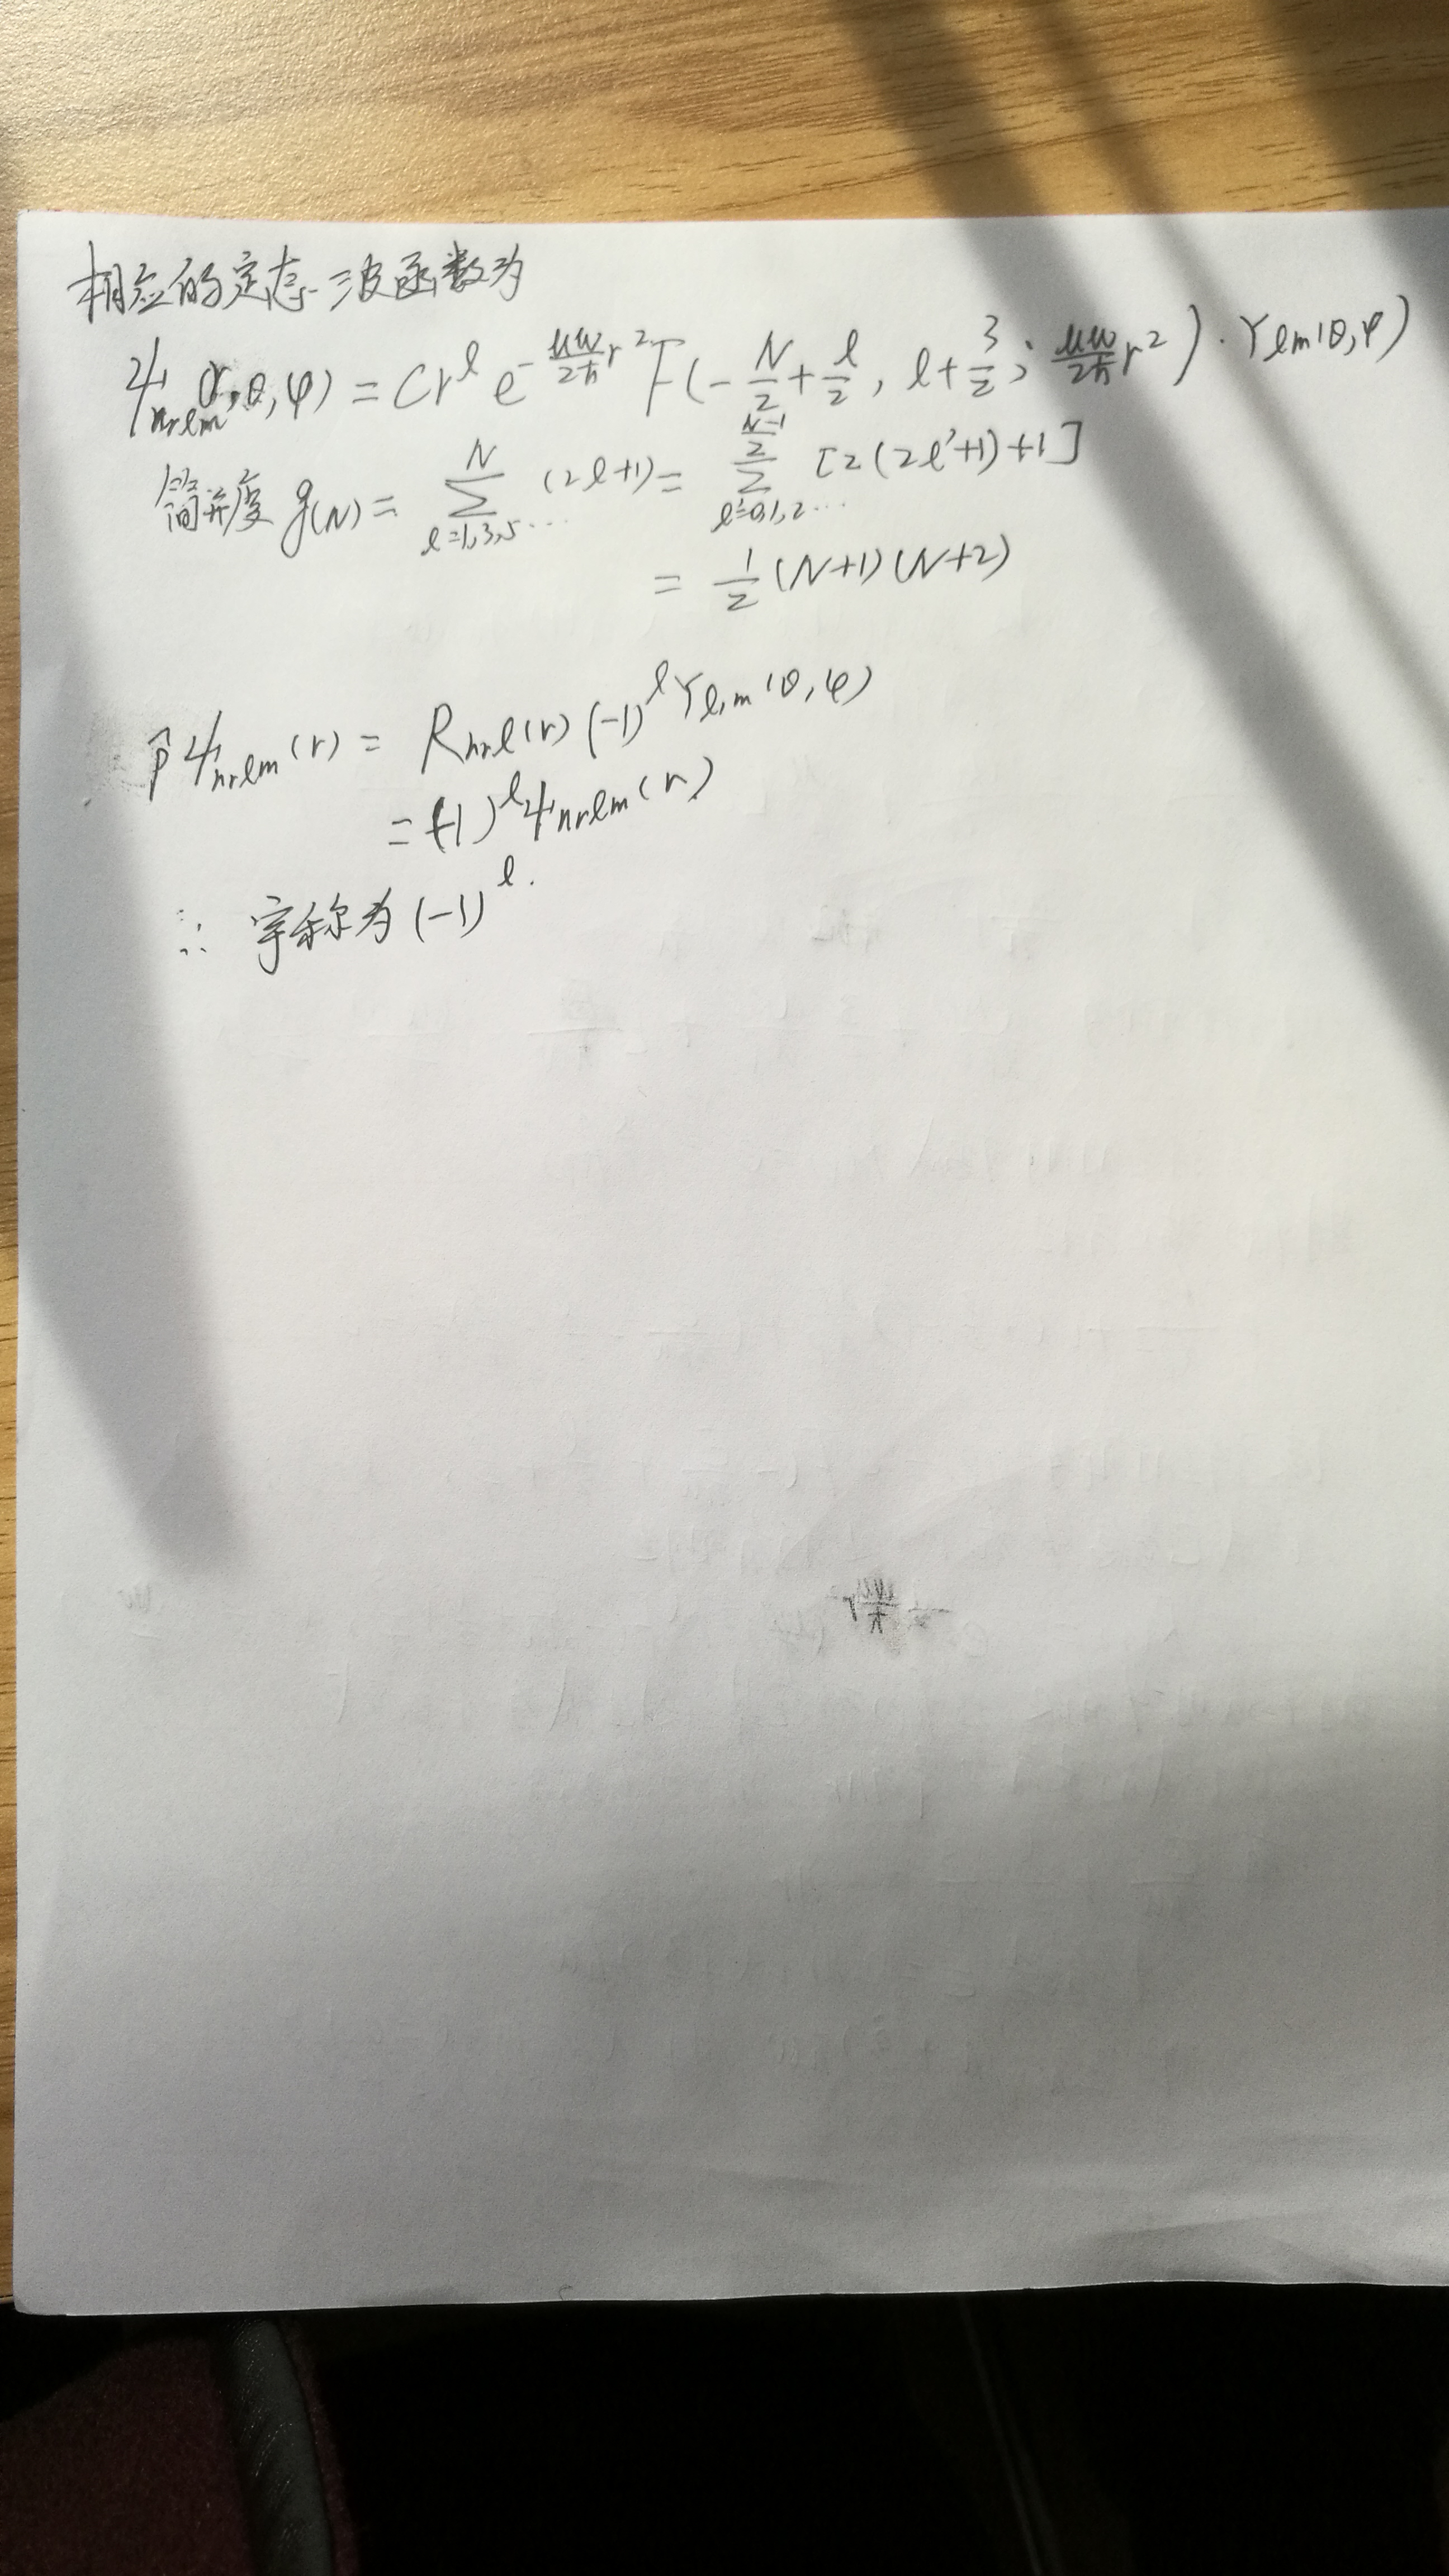 相应的定态波函数为
ψ_{n_r l m}(r,θ,φ) = C r^l e^{-\frac{μω}{2ħ}r^2} F(-\frac{N}{2}+\frac{l}{2}, l+\frac{3}{2}; \frac{μω}{2ħ}r^2)·Y_{lm}(θ,φ)
简并度 g(N) = \sum_{l=1,3,5…}^{N} (2l+1) = \sum_{l'=0,1,2…}^{\frac{N-1}{2}} [2(2l'+1)+1]
= \frac{1}{2}(N+1)(N+2)
\hat{p}ψ_{n_r l m}(r) = R_{n_r l}(r)(-1)^l Y_{l,m}(θ,φ)
= (-1)^l ψ_{n_r l m}(r)
∴ 宇称为(-1)^l.